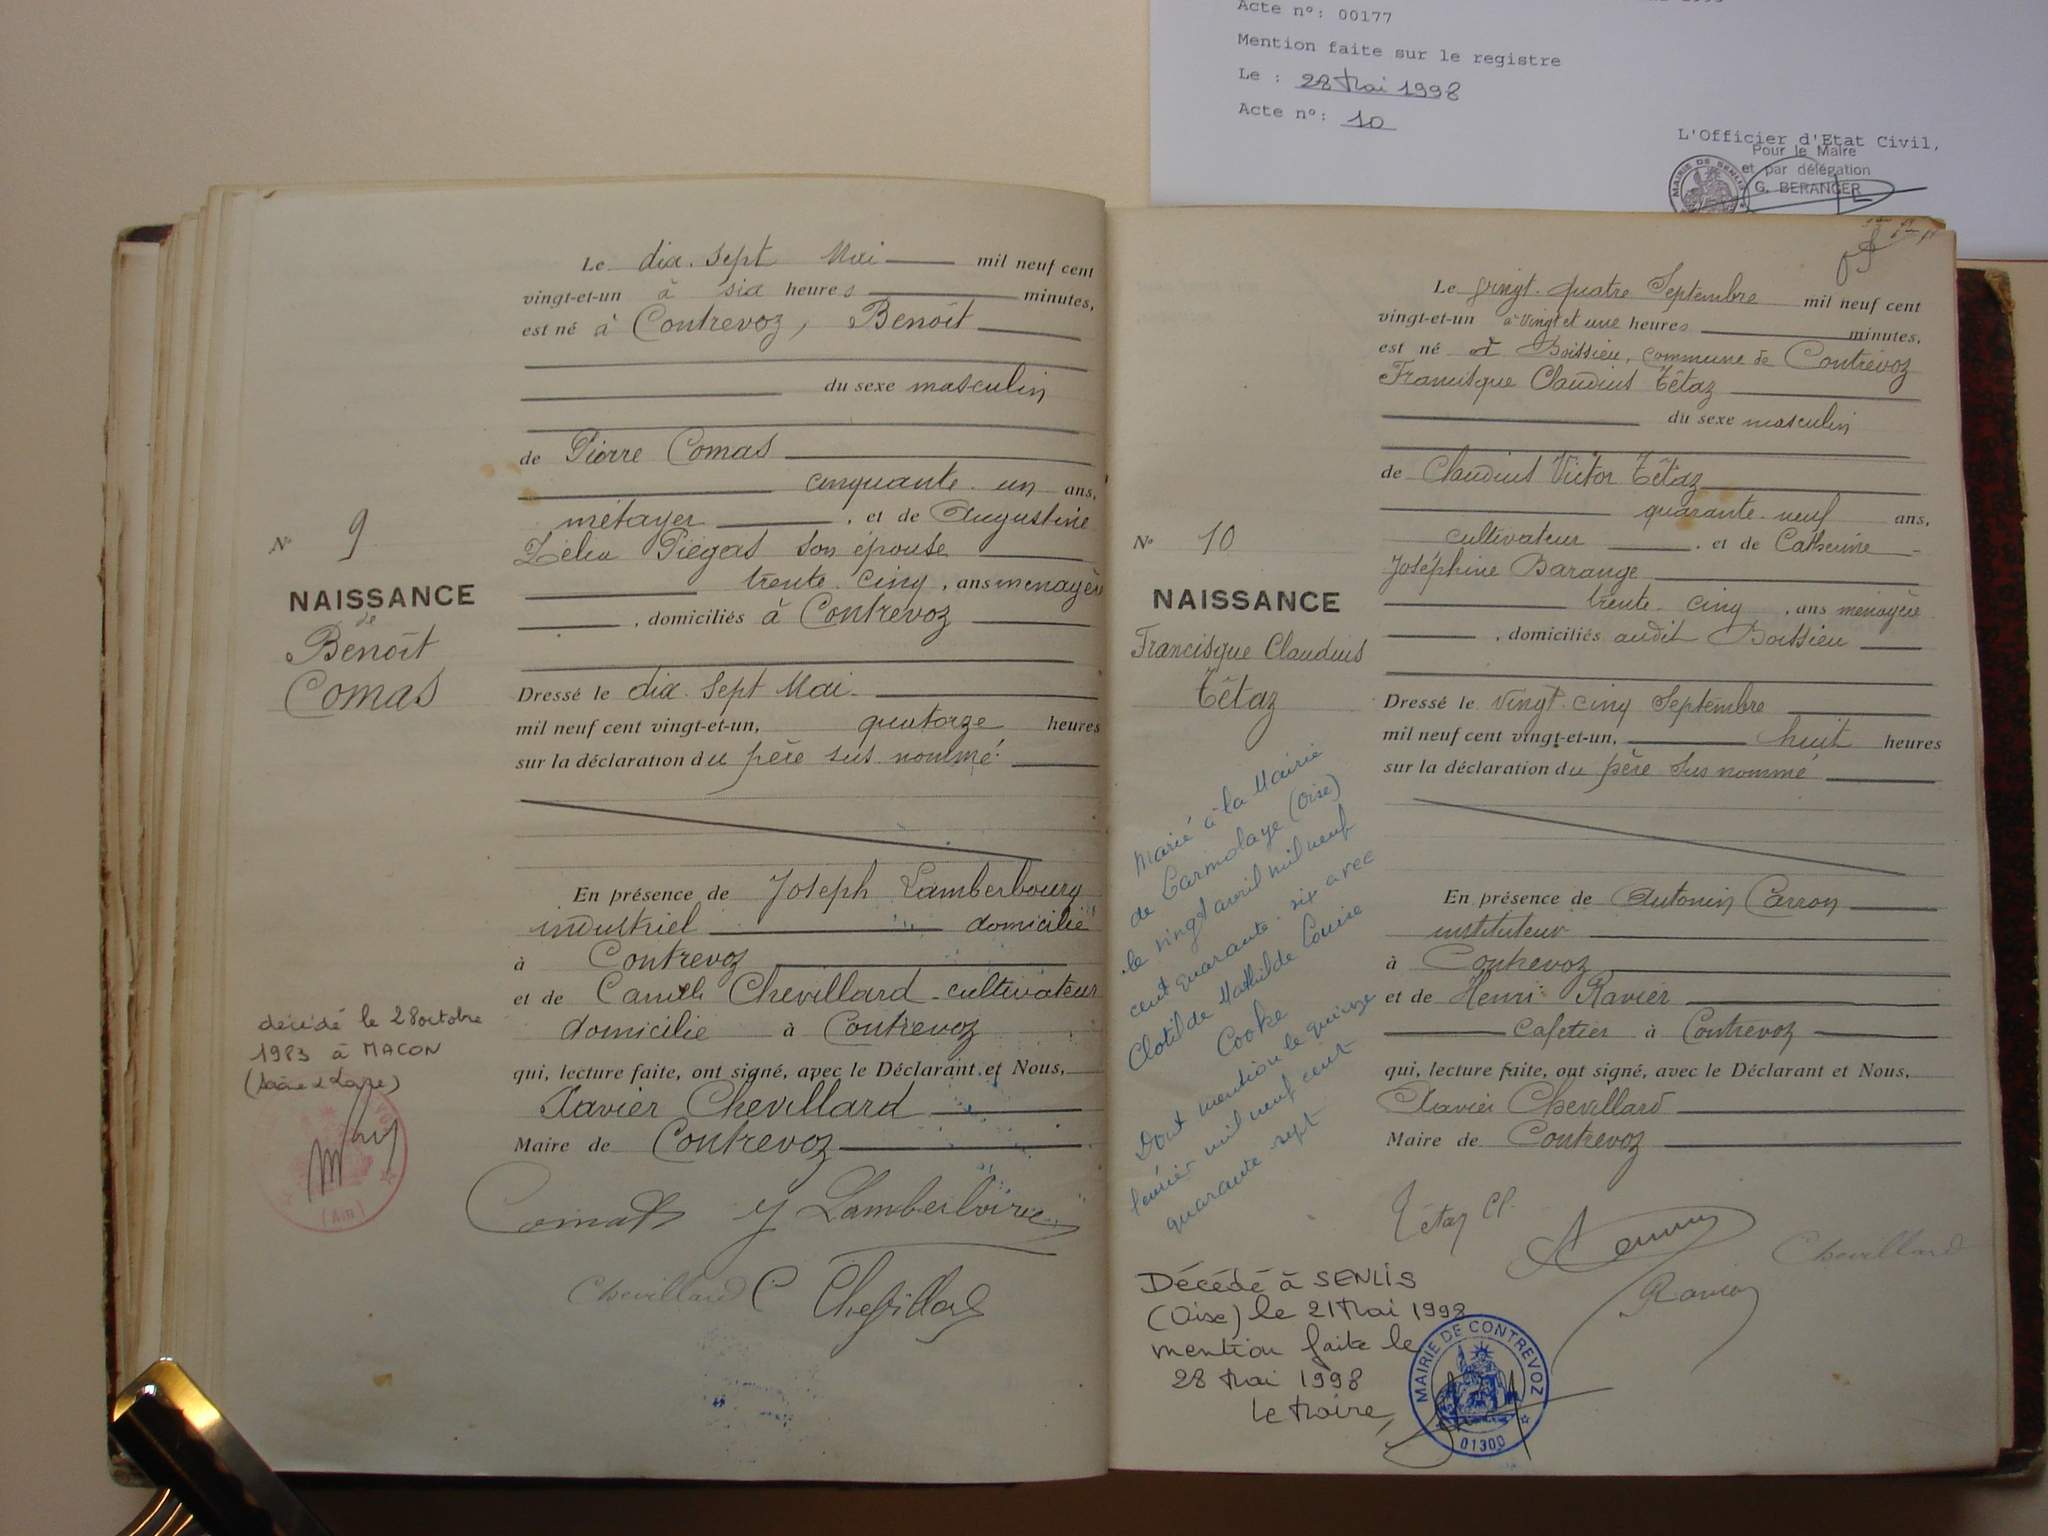 Acte n°: 00177
Mention faite sur le registre
Le : 28 Mai 1998
Acte n°: 10
L'Officier d'Etat Civil,
Pour le Maire
et par délégation
G. BERANGER
MAIRIE DE SENLIS
Le dix-sept Mai mil neuf cent
vingt-et-un à six heures minutes,
est né à Contrevoz, Benoît
du sexe masculin
de Pierre Comas
cinquante-un ans,
métayer, et de Augustine
Zélia Piégas son épouse
trente-cinq, ans menagère
, domiciliés à Contrevoz
Dressé le dix-sept Mai
mil neuf cent vingt-et-un, quatorze heures
sur la déclaration du père sus nommé
En présence de Joseph Lamberbourg
industriel domicilié
à Contrevoz
et de Camille Chevillard cultivateur
domicilié à Contrevoz
qui, lecture faite, ont signé, avec le Déclarant et Nous,
Xavier Chevillard
Maire de Contrevoz
Comas
Chevillard C Chevillard
N° 9
NAISSANCE
de
Benoît
Comas
décédé le 28 octobre
1983 à MACON
(Saône et Loire)
(Ain)
Le vingt-quatre Septembre mil neuf cent
vingt-et-un à vingt et une heures minutes,
est né à Boissieu, commune de Contrevoz
Francisque Claudius Têtaz
du sexe masculin
de Claudius Victor Têtaz
quarante-neuf ans,
cultivateur, et de Catherine
Joséphine Barange
trente-cinq, ans ménagère
, domiciliés audit Boissieu
Dressé le vingt-cinq Septembre
mil neuf cent vingt-et-un, huit heures
sur la déclaration du père sus nommé
En présence de Antonin Carron
instituteur
à Contrevoz
et de Henri Ravier
cafetier à Contrevoz
qui, lecture faite, ont signé, avec le Déclarant et Nous,
Xavier Chevillard
Maire de Contrevoz
Têtaz Cl.
Chevillard
Ravier
N° 10
NAISSANCE
Francisque Claudius
Têtaz
Marié à la Mairie
de Larmolaye (Oise)
le vingt avril mil neuf
cent quarante-six avec
Clotilde Mathilde Louise
Cooke
Dont mention le quinze
février mil neuf cent
quarante sept
Décédé à SENLIS
(Oise) le 21 Mai 1998
mention faite le
28 Mai 1998
Le Maire,
MAIRIE DE CONTREVOZ
01300